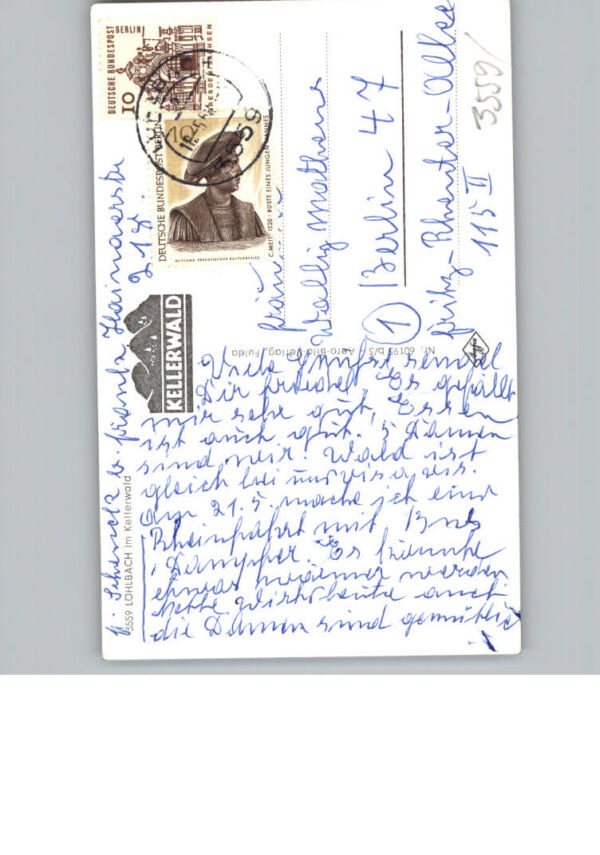 DEUTSCHE BUNDESPOST BERLIN
10
DRESDEN SACHSEN
DEUTSCHE BUNDESPOST BERLIN
C. MEIT 1520 · BÜSTE EINES JUNGEN MANNES
STIFTUNG PREUSSISCHER KULTURBESITZ
3559
KELLERWALD
3559/
Wallig
Berlin 47
1
Fritz-Rheuter-Allee
115 II
Nr. 60195 b/3 - Aero-Bild-Verlag, Fulda
3559 LÖHLBACH im Kellerwald
Schenck b. Frantz Hainaerstr
Viele Grüße sendet
Dir Frieda. Es gefällt
mir sehr gut, Essen
ist auch gut. 5 Damen
sind wir. Wald ist
gleich bei uns vis a vis.
Am 21.5. mache ich eine
Rheinfahrt mit Bus
Dampfer. Es könnte
etwas wärmer werden
nette Wirtsleute auch
die Damen sind gemütlich